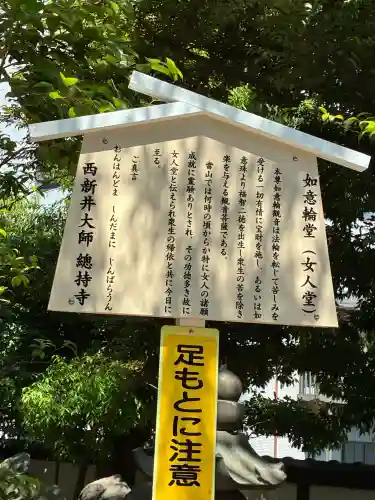 如意輪堂（女人堂）
本尊如意輪観音は法輪を転じ苦しみを
受ける一切有情に宝財を施し、あるいは如
意珠より福智二徳を出生し、衆生の苦を除き
楽を与える観音菩薩である。
當山では何時の頃からか特に女人の諸願
成就に霊験ありとされ、その功徳も多故に
女人堂と伝えられ衆生の帰依と共に今日に
至る。
ご真言
おんはんどま　しんだまに　じんばらうん
西新井大師　總持寺
足もとに注意